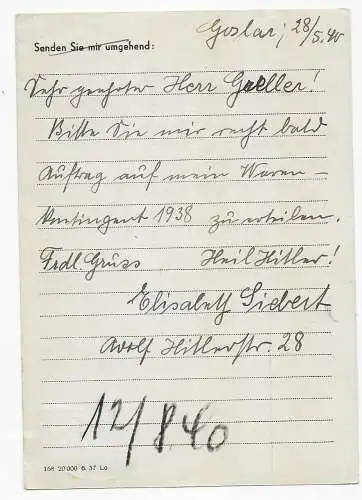 Goslar, 28/5.40
Senden Sie mir umgehend:
Sehr geehrter Herr Geller!
Bitte Sie mir recht bald
Auftrag auf mein Waren-
kontingent 1938 zu erteilen.
Frdl. Gruss Heil Hitler!
Elisabeth Siebert
Adolf Hitlerstr. 28
12/8.40
168 20 000 6. 37 Lo